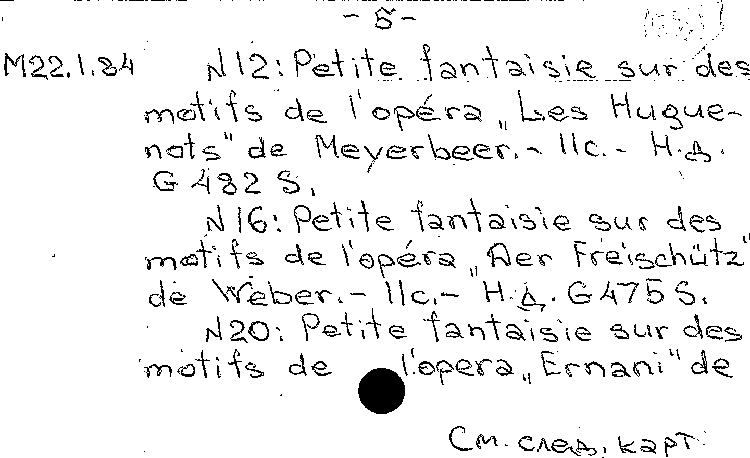 - 5 -
M22.1.84 N12: Petite fantaisie sur des
motifs de l'opéra „Les Hugue-
nots" de Meyerbeer.- 11с.- Н.д.
G 482 S.
N16: Petite fantaisie sur des
motifs de l'opéra „Der Freischütz"
de Weber.- 11с.- Н.Д. G 475 S.
N20: Petite fantaisie sur des
motifs de l'opera „Ernani" de
См. след. карт.